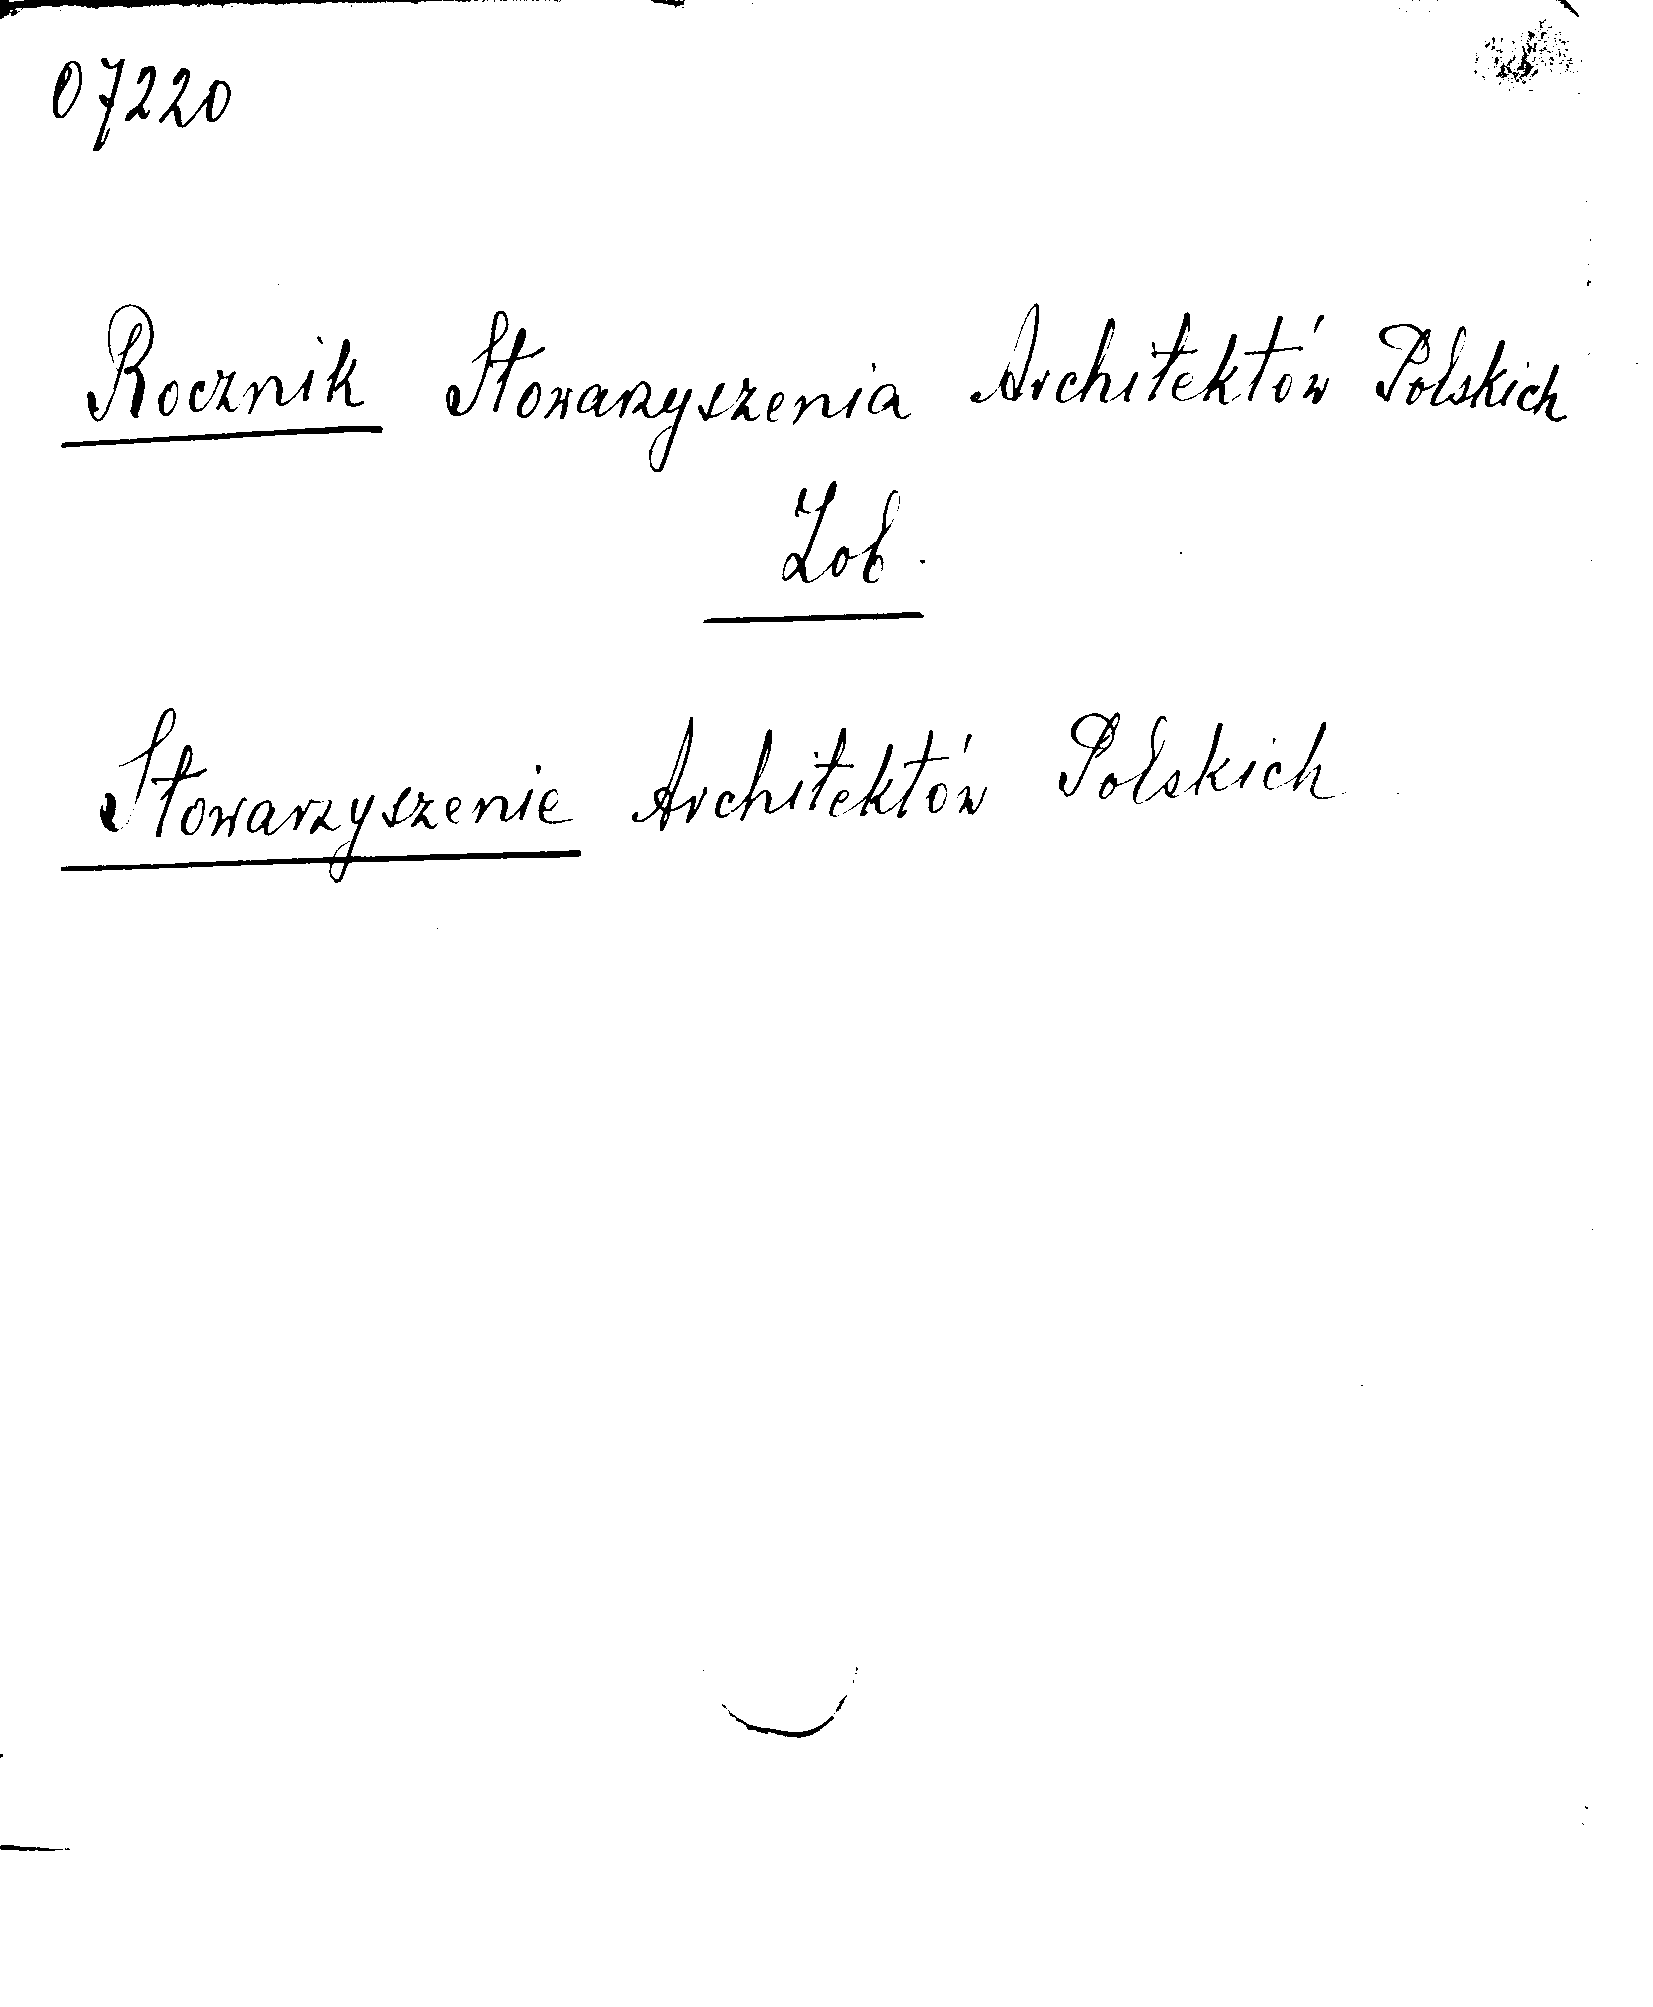 07220
Rocznik Stowarzyszenia Architektów Polskich
Zob.
Stowarzyszenie Architektów Polskich